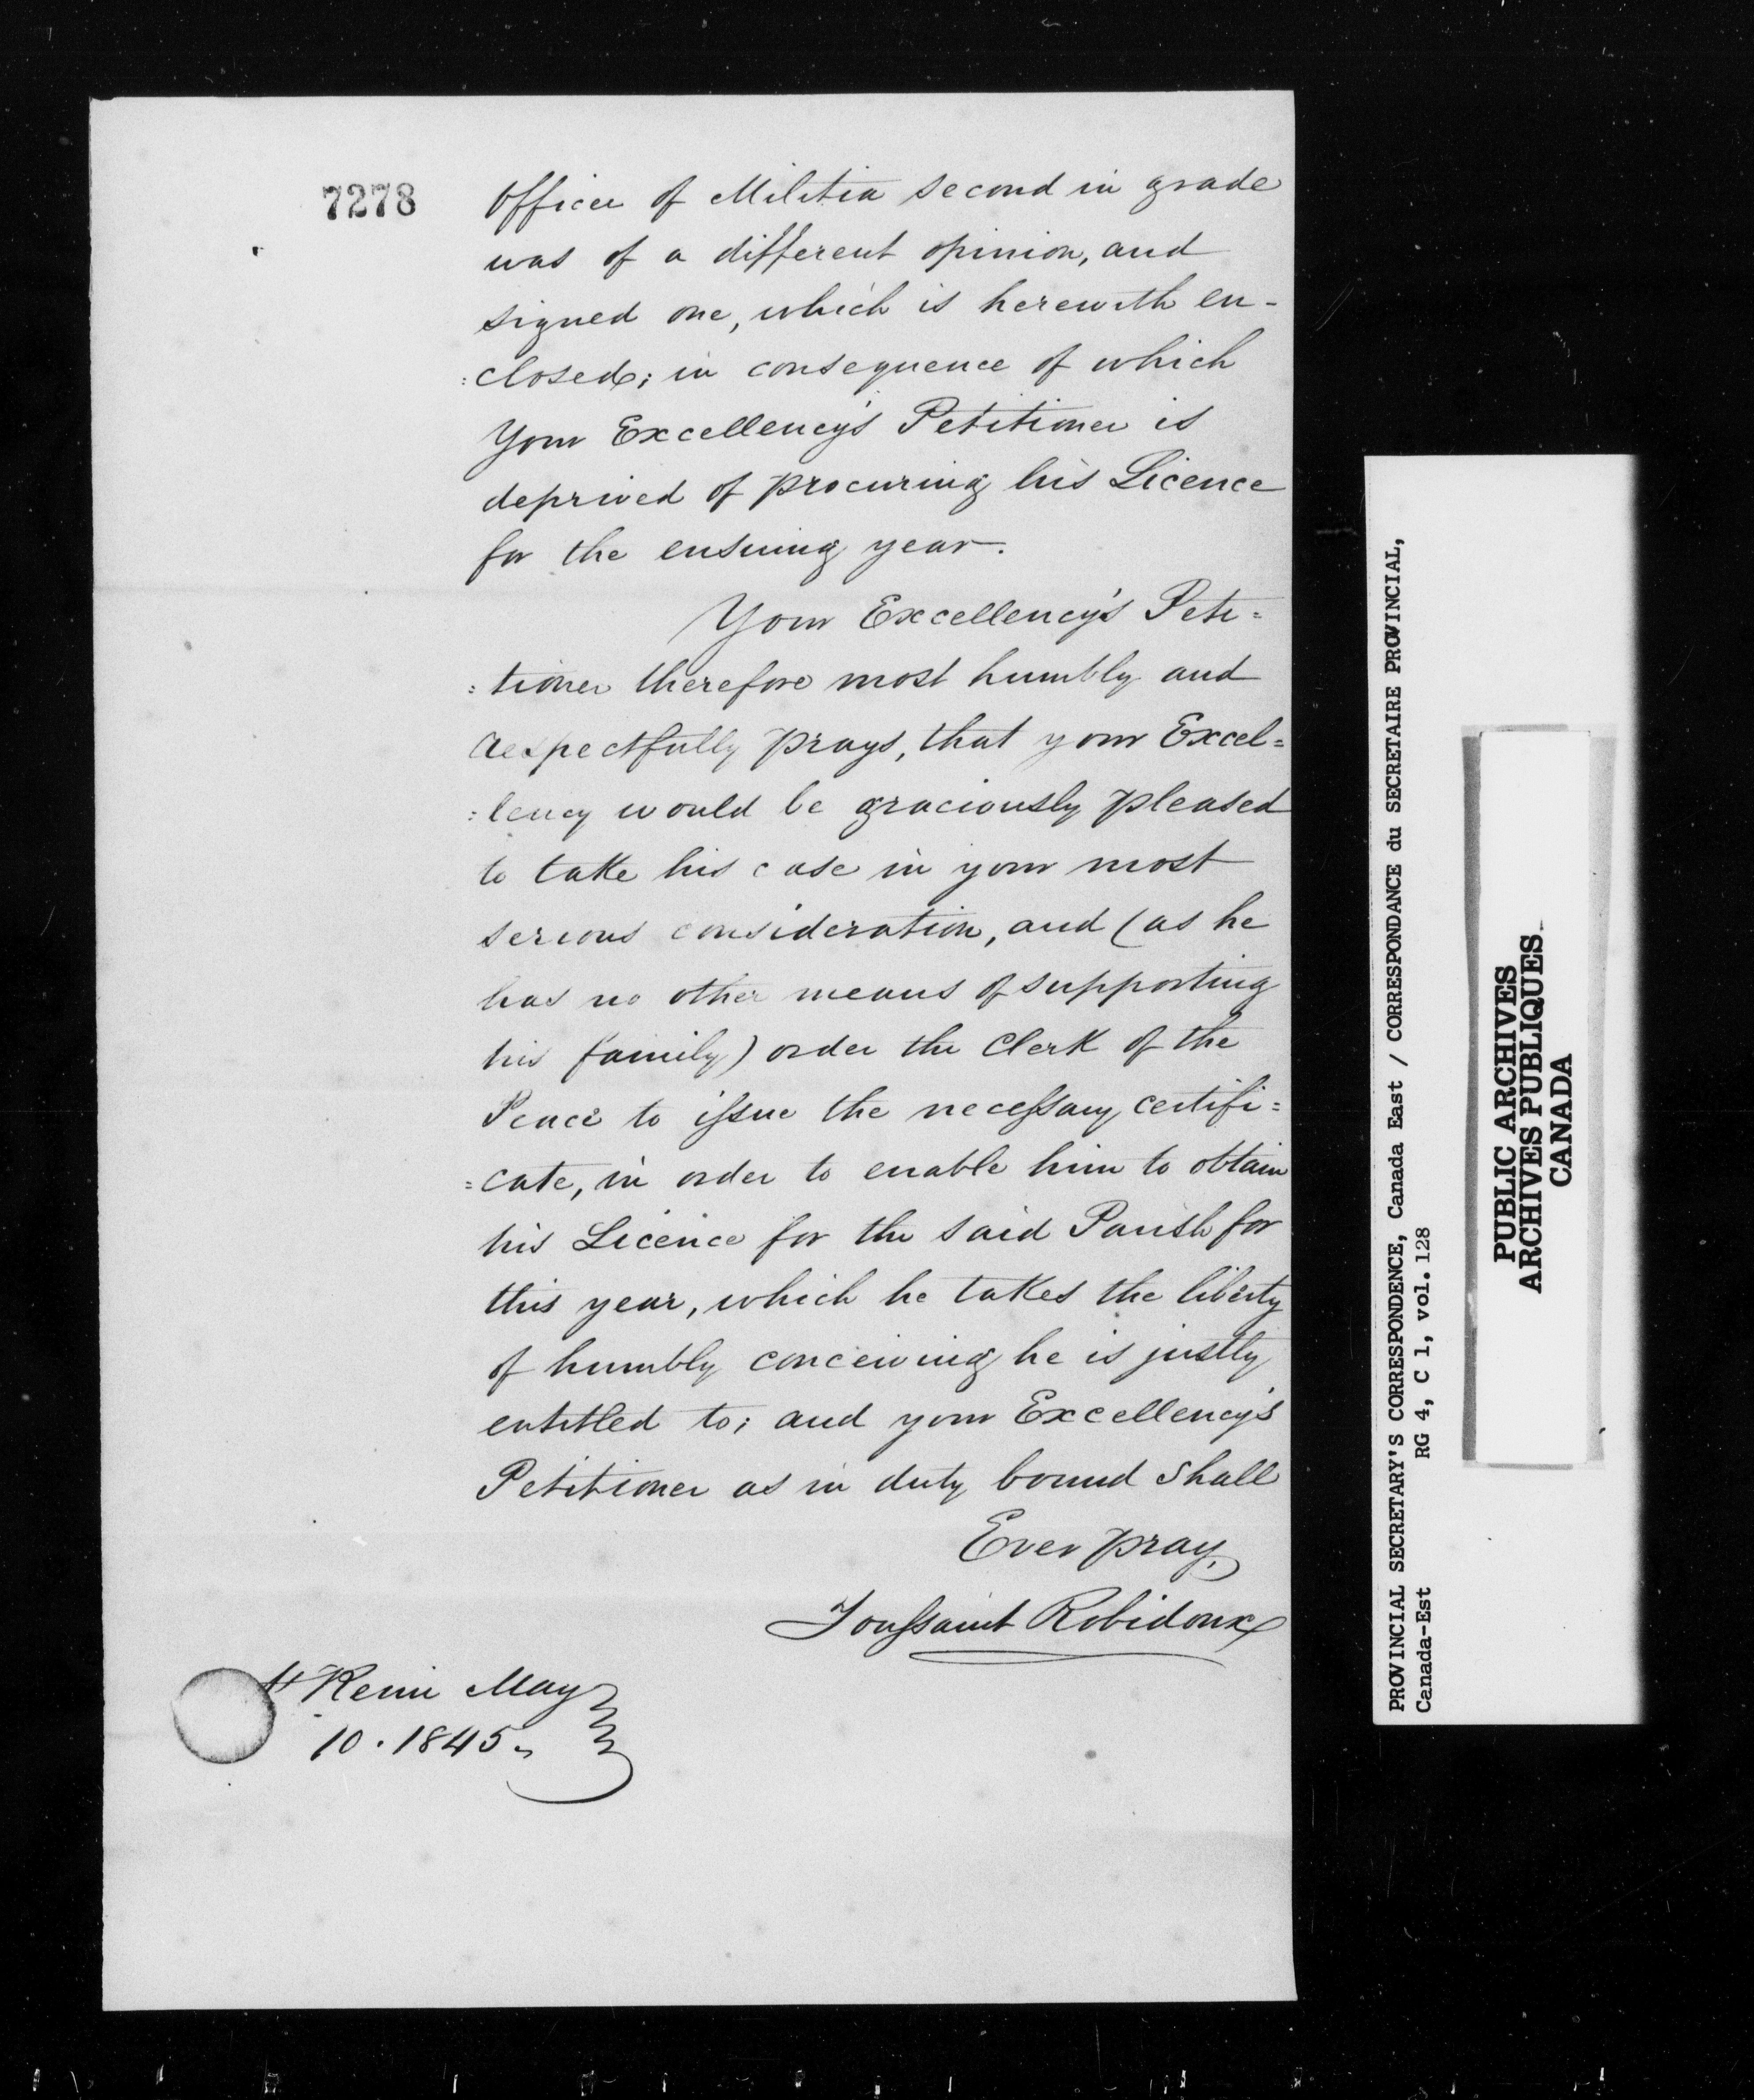 7278
Officer of Militia second in grade
was of a different opinion, and
signed one, which is herewith en-
:closed; in consequence of which
Your Excellency's Petitioner is
deprived of procuring his Licence
for the ensuing year.
Your Excellency's Peti=
:tioner therefore most humbly and
respectfully prays, that your Excel=
:lency would be graciously pleased
to take his case in your most
serious consideration, and (as he
has no other means of supporting
his family) order the Clerk of the
Peace to issue the necessary certifi=
=cate, in order to enable him to obtain
his Licence for the said Parish for
this year, which he takes the liberty
of humbly conceiving he is justly
entitled to; and your Excellency's
Petitioner as in duty bound shall
Ever pray,
Toussaint Robidoux
St Remi May
10. 1845.
PROVINCIAL SECRETARY'S CORRESPONDENCE, Canada East / CORRESPONDANCE du SECRETAIRE PROVINCIAL,
Canada-Est RG 4, C 1, vol. 128
PUBLIC ARCHIVES
ARCHIVES PUBLIQUES
CANADA